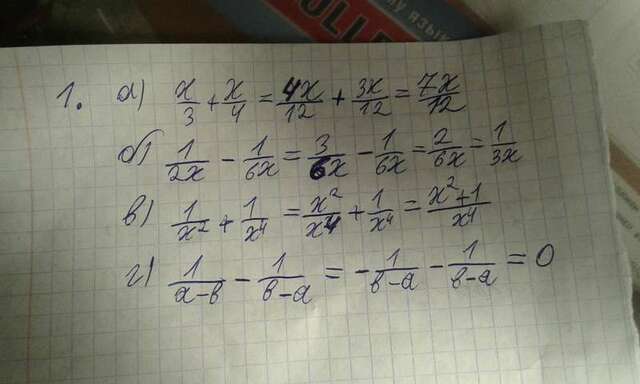 ULLE
му язык
1. а) x/3 + x/4 = 4x/12 + 3x/12 = 7x/12
б) 1/2x - 1/6x = 3/6x - 1/6x = 2/6x = 1/3x
в) 1/x² + 1/x⁴ = x²/x⁴ + 1/x⁴ = x²+1/x⁴
г) 1/a-в - 1/в-a = -1/в-a - 1/в-a = 0